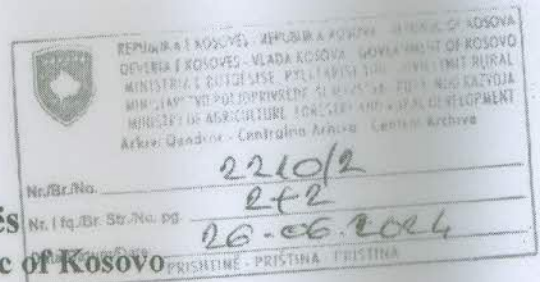 REPUBLIKA E KOSOVËS - REPUBLIKA KOSOVA - REPUBLIC OF KOSOVA
QEVERIA E KOSOVËS - VLADA KOSOVA - GOVERNMENT OF KOSOVO
MINISTRIA E BUJQËSISË, PYLLTARISË DHE ZHVILLIMIT RURAL
MINISTARSTVO POLJOPRIVREDE ŠUMARSTVA RAZVOJA
MINISTRY OF AGRICULTURE, FORESTRY AND RURAL DEVELOPMENT
Arkivi Qendror - Centralna Arhiva - Central Archive
Nr./Br./No. 2210/2
ës Nr. i fq./Br. Str./No. pg. 2+2
26-06.2024
c of Kosovo PRISHTINË - PRIŠTINA - PRISTINA